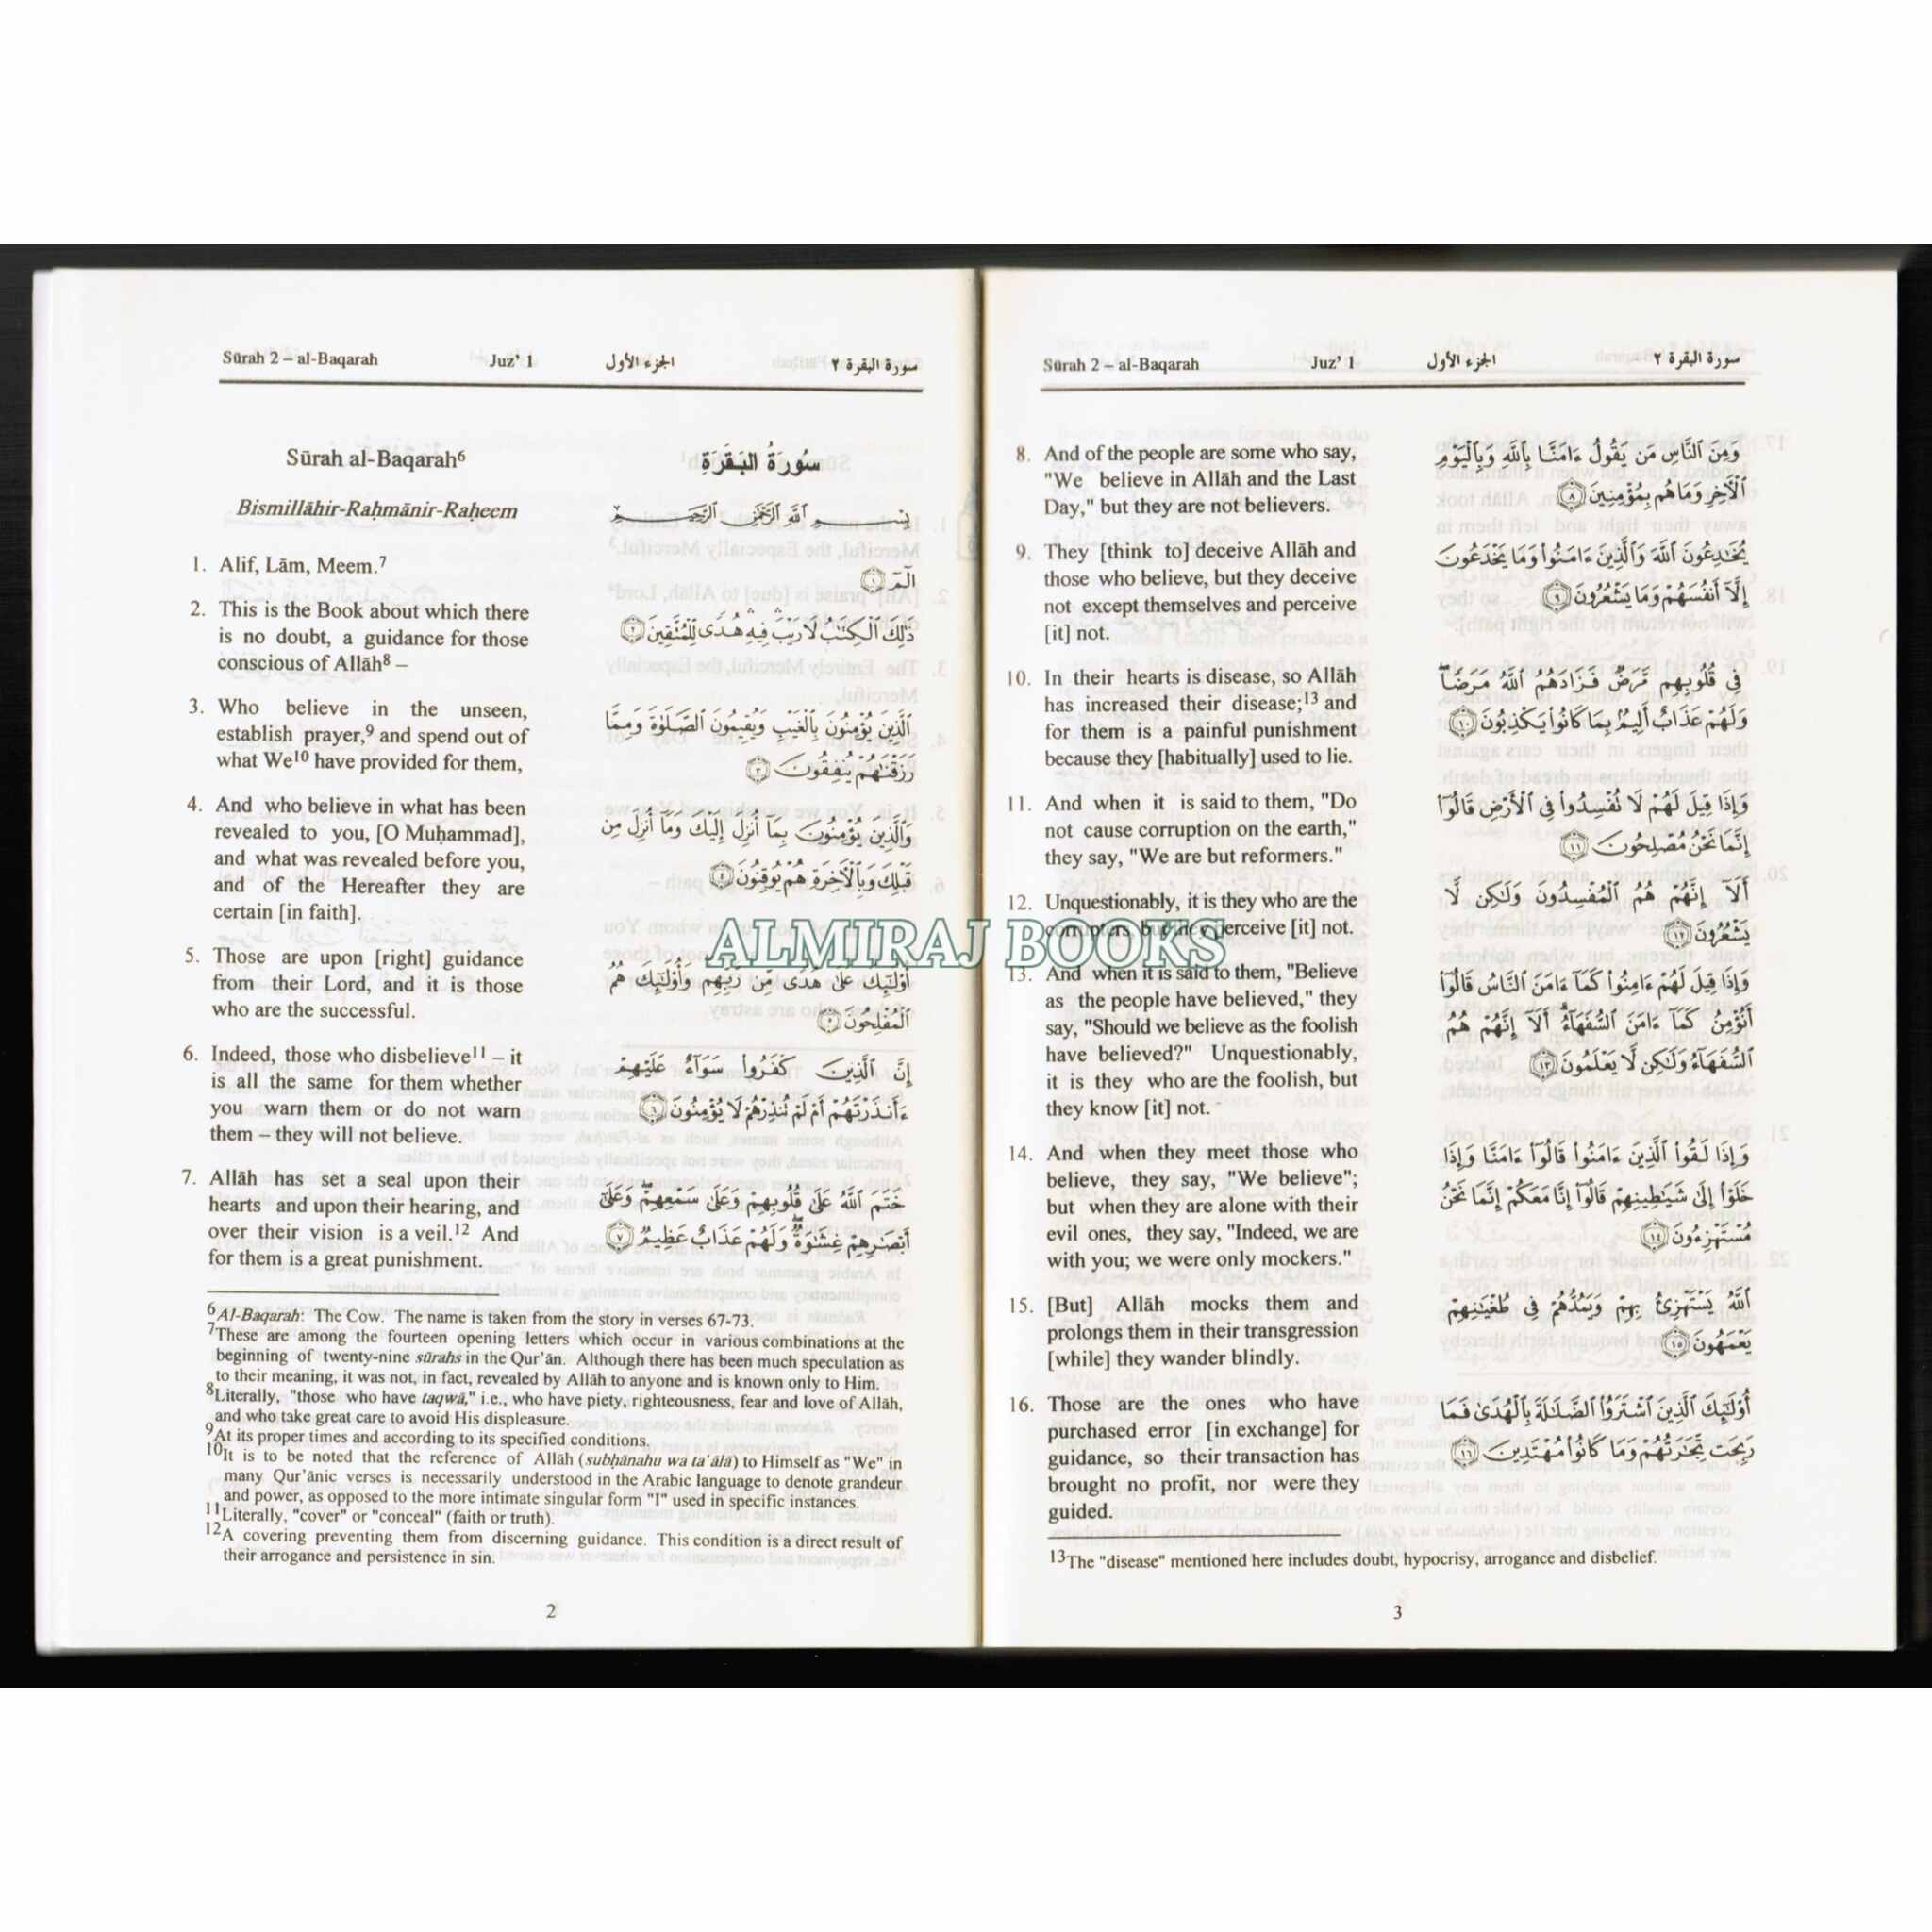 Sūrah 2 – al-Baqarah Juz’ 1 الجزء الأول سورة البقرة ٢
Sūrah al-Baqarah6
Bismillāhir-Raḥmānir-Raḥeem
1. Alif, Lām, Meem.7
2. This is the Book about which there
is no doubt, a guidance for those
conscious of Allāh8 –
3. Who believe in the unseen,
establish prayer,9 and spend out of
what We10 have provided for them,
4. And who believe in what has been
revealed to you, [O Muḥammad],
and what was revealed before you,
and of the Hereafter they are
certain [in faith].
5. Those are upon [right] guidance
from their Lord, and it is those
who are the successful.
6. Indeed, those who disbelieve11 – it
is all the same for them whether
you warn them or do not warn
them – they will not believe.
7. Allāh has set a seal upon their
hearts and upon their hearing, and
over their vision is a veil.12 And
for them is a great punishment.
سُورَةُ البَقَرَةِ
بِسْمِ ٱللَّهِ ٱلرَّحْمَٰنِ ٱلرَّحِيمِ
الٓمٓ ١
ذَٰلِكَ ٱلْكِتَٰبُ لَا رَيْبَۛ فِيهِۛ هُدًى لِّلْمُتَّقِينَ ٢
ٱلَّذِينَ يُؤْمِنُونَ بِٱلْغَيْبِ وَيُقِيمُونَ ٱلصَّلَوٰةَ وَمِمَّا
رَزَقْنَٰهُمْ يُنفِقُونَ ٣
وَٱلَّذِينَ يُؤْمِنُونَ بِمَآ أُنزِلَ إِلَيْكَ وَمَآ أُنزِلَ مِن
قَبْلِكَ وَبِٱلْأَخِرَةِ هُمْ يُوقِنُونَ ٤
أُوْلَٰٓئِكَ عَلَىٰ هُدًى مِّن رَّبِّهِمْ وَأُوْلَٰٓئِكَ هُمُ
ٱلْمُفْلِحُونَ ٥
إِنَّ ٱلَّذِينَ كَفَرُوا۟ سَوَآءٌ عَلَيْهِمْ
ءَأَنذَرْتَهُمْ أَمْ لَمْ تُنذِرْهُمْ لَا يُؤْمِنُونَ ٦
خَتَمَ ٱللَّهُ عَلَىٰ قُلُوبِهِمْ وَعَلَىٰ سَمْعِهِمْ وَعَلَىٰٓ
أَبْصَٰرِهِمْ غِشَٰوَةٌ وَلَهُمْ عَذَابٌ عَظِيمٌ ٧
6Al-Baqarah: The Cow. The name is taken from the story in verses 67-73.
7These are among the fourteen opening letters which occur in various combinations at the
beginning of twenty-nine sūrahs in the Qur’ān. Although there has been much speculation as
to their meaning, it was not, in fact, revealed by Allāh to anyone and is known only to Him.
8Literally, "those who have taqwā," i.e., who have piety, righteousness, fear and love of Allāh,
and who take great care to avoid His displeasure.
9At its proper times and according to its specified conditions.
10It is to be noted that the reference of Allāh (subḥānahu wa ta‘ālā) to Himself as "We" in
many Qur’ānic verses is necessarily understood in the Arabic language to denote grandeur
and power, as opposed to the more intimate singular form "I" used in specific instances.
11Literally, "cover" or "conceal" (faith or truth).
12A covering preventing them from discerning guidance. This condition is a direct result of
their arrogance and persistence in sin.
2
ALMIRAJ BOOKS
Sūrah 2 – al-Baqarah Juz’ 1 الجزء الأول سورة البقرة ٢
8. And of the people are some who say,
"We believe in Allāh and the Last
Day," but they are not believers.
9. They [think to] deceive Allāh and
those who believe, but they deceive
not except themselves and perceive
[it] not.
10. In their hearts is disease, so Allāh
has increased their disease;13 and
for them is a painful punishment
because they [habitually] used to lie.
11. And when it is said to them, "Do
not cause corruption on the earth,"
they say, "We are but reformers."
12. Unquestionably, it is they who are the
corrupters, but they perceive [it] not.
13. And when it is said to them, "Believe
as the people have believed," they
say, "Should we believe as the foolish
have believed?" Unquestionably,
it is they who are the foolish, but
they know [it] not.
14. And when they meet those who
believe, they say, "We believe";
but when they are alone with their
evil ones, they say, "Indeed, we are
with you; we were only mockers."
15. [But] Allāh mocks them and
prolongs them in their transgression
[while] they wander blindly.
16. Those are the ones who have
purchased error [in exchange] for
guidance, so their transaction has
brought no profit, nor were they
guided.
وَمِنَ ٱلنَّاسِ مَن يَقُولُ ءَامَنَّا بِٱللَّهِ وَبِٱلْيَوْمِ
ٱلْأَخِرِ وَمَا هُم بِمُؤْمِنِينَ ٨
يُخَٰدِعُونَ ٱللَّهَ وَٱلَّذِينَ ءَامَنُوا۟ وَمَا يَخْدَعُونَ
إِلَّآ أَنفُسَهُمْ وَمَا يَشْعُرُونَ ٩
فِى قُلُوبِهِم مَّرَضٌ فَزَادَهُمُ ٱللَّهُ مَرَضًا
وَلَهُمْ عَذَابٌ أَلِيمٌۢ بِمَا كَانُوا۟ يَكْذِبُونَ ١٠
وَإِذَا قِيلَ لَهُمْ لَا تُفْسِدُوا۟ فِى ٱلْأَرْضِ قَالُوٓا۟
إِنَّمَا نَحْنُ مُصْلِحُونَ ١١
أَلَآ إِنَّهُمْ هُمُ ٱلْمُفْسِدُونَ وَلَٰكِن لَّا
يَشْعُرُونَ ١٢
وَإِذَا قِيلَ لَهُمْ ءَامِنُوا۟ كَمَآ ءَامَنَ ٱلنَّاسُ قَالُوٓا۟
أَنُؤْمِنُ كَمَآ ءَامَنَ ٱلسُّفَهَآءُ أَلَآ إِنَّهُمْ هُمُ
ٱلسُّفَهَآءُ وَلَٰكِن لَّا يَعْلَمُونَ ١٣
وَإِذَا لَقُوا۟ ٱلَّذِينَ ءَامَنُوا۟ قَالُوٓا۟ ءَامَنَّا وَإِذَا
خَلَوْا۟ إِلَىٰ شَيَٰطِينِهِمْ قَالُوٓا۟ إِنَّا مَعَكُمْ إِنَّمَا نَحْنُ
مُسْتَهْزِءُونَ ١٤
ٱللَّهُ يَسْتَهْزِئُ بِهِمْ وَيَمُدُّهُمْ فِى طُغْيَٰنِهِمْ
يَعْمَهُونَ ١٥
أُوْلَٰٓئِكَ ٱلَّذِينَ ٱشْتَرَوُا۟ ٱلضَّلَٰلَةَ بِٱلْهُدَىٰ فَمَا
رَبِحَت تِّجَٰرَتُهُمْ وَمَا كَانُوا۟ مُهْتَدِينَ ١٦
13The "disease" mentioned here includes doubt, hypocrisy, arrogance and disbelief.
3